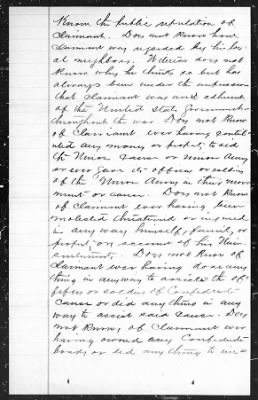 Know the public reputation of
claimant. Does not know how
claimant was regarded by his loc
al neighbors. Witness does not
know why he thinks so but has
always been under the impression
that claimant was an adherent
of the United State Government
throughout the war. Does not know
of Claimant ever having contrib
uted any money or property to aid
the Union cause or Union Army
or ever gave the officers or soldiers
of the Union Army in their move
ments or cause. Does not know
of claimant ever having been
molested threatened or injured
in any way himself, family or
property on account of his Union
sentiments. Does not know of
claimant ever having done any
thing in anyway to assist the of
ficers or soldiers of Confederate
cause or did any thing in any
way to assist said cause. Does
not know of Claimant ever
having owned any Confederate
bonds or did any thing to